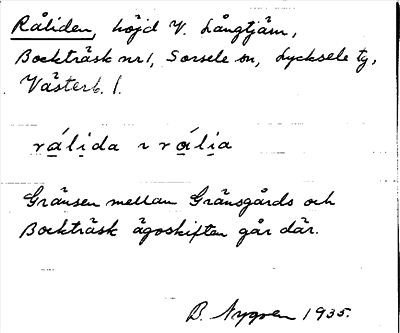 Råliden, höjd V. Långtjärn,
Bockträsk nr 1, Sorsele sn, Lycksele tg,
Västerb. l.
rá̲li̲da ~ rá̲li̲a
Gränsen mellan Gränsgårds och
Bockträsk ägoskiften går där.
B. Nygren 1935.